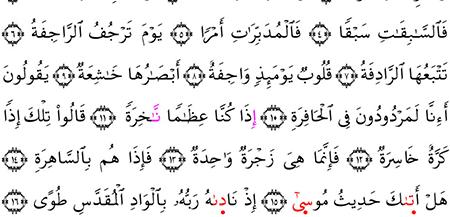 فَالسَّـٰبِقَـٰتِ سَبْقًا ﴿٤﴾ فَالْمُدَبِّرَٰتِ أَمْرًا ﴿٥﴾ يَوْمَ تَرْجُفُ الرَّاجِفَةُ ﴿٦﴾
تَتْبَعُهَا الرَّادِفَةُ ﴿٧﴾ قُلُوبٌ يَوْمَئِذٍ وَاجِفَةٌ ﴿٨﴾ أَبْصَـٰرُهَا خَـٰشِعَةٌ ﴿٩﴾ يَقُولُونَ
أَءِنَّا لَمَرْدُودُونَ فِى الْحَافِرَةِ ﴿١٠﴾ إِذَا كُنَّا عِظَـٰمًا نَّخِرَةً ﴿١١﴾ قَالُوا۟ تِلْكَ إِذًا
كَرَّةٌ خَاسِرَةٌ ﴿١٢﴾ فَإِنَّمَا هِىَ زَجْرَةٌ وَٰحِدَةٌ ﴿١٣﴾ فَإِذَا هُم بِالسَّاهِرَةِ ﴿١٤﴾
هَلْ أَتىٰكَ حَدِيثُ مُوسىٰٓ ﴿١٥﴾ إِذْ نَادىٰهُ رَبُّهُۥ بِالْوَادِ الْمُقَدَّسِ طُوًى ﴿١٦﴾